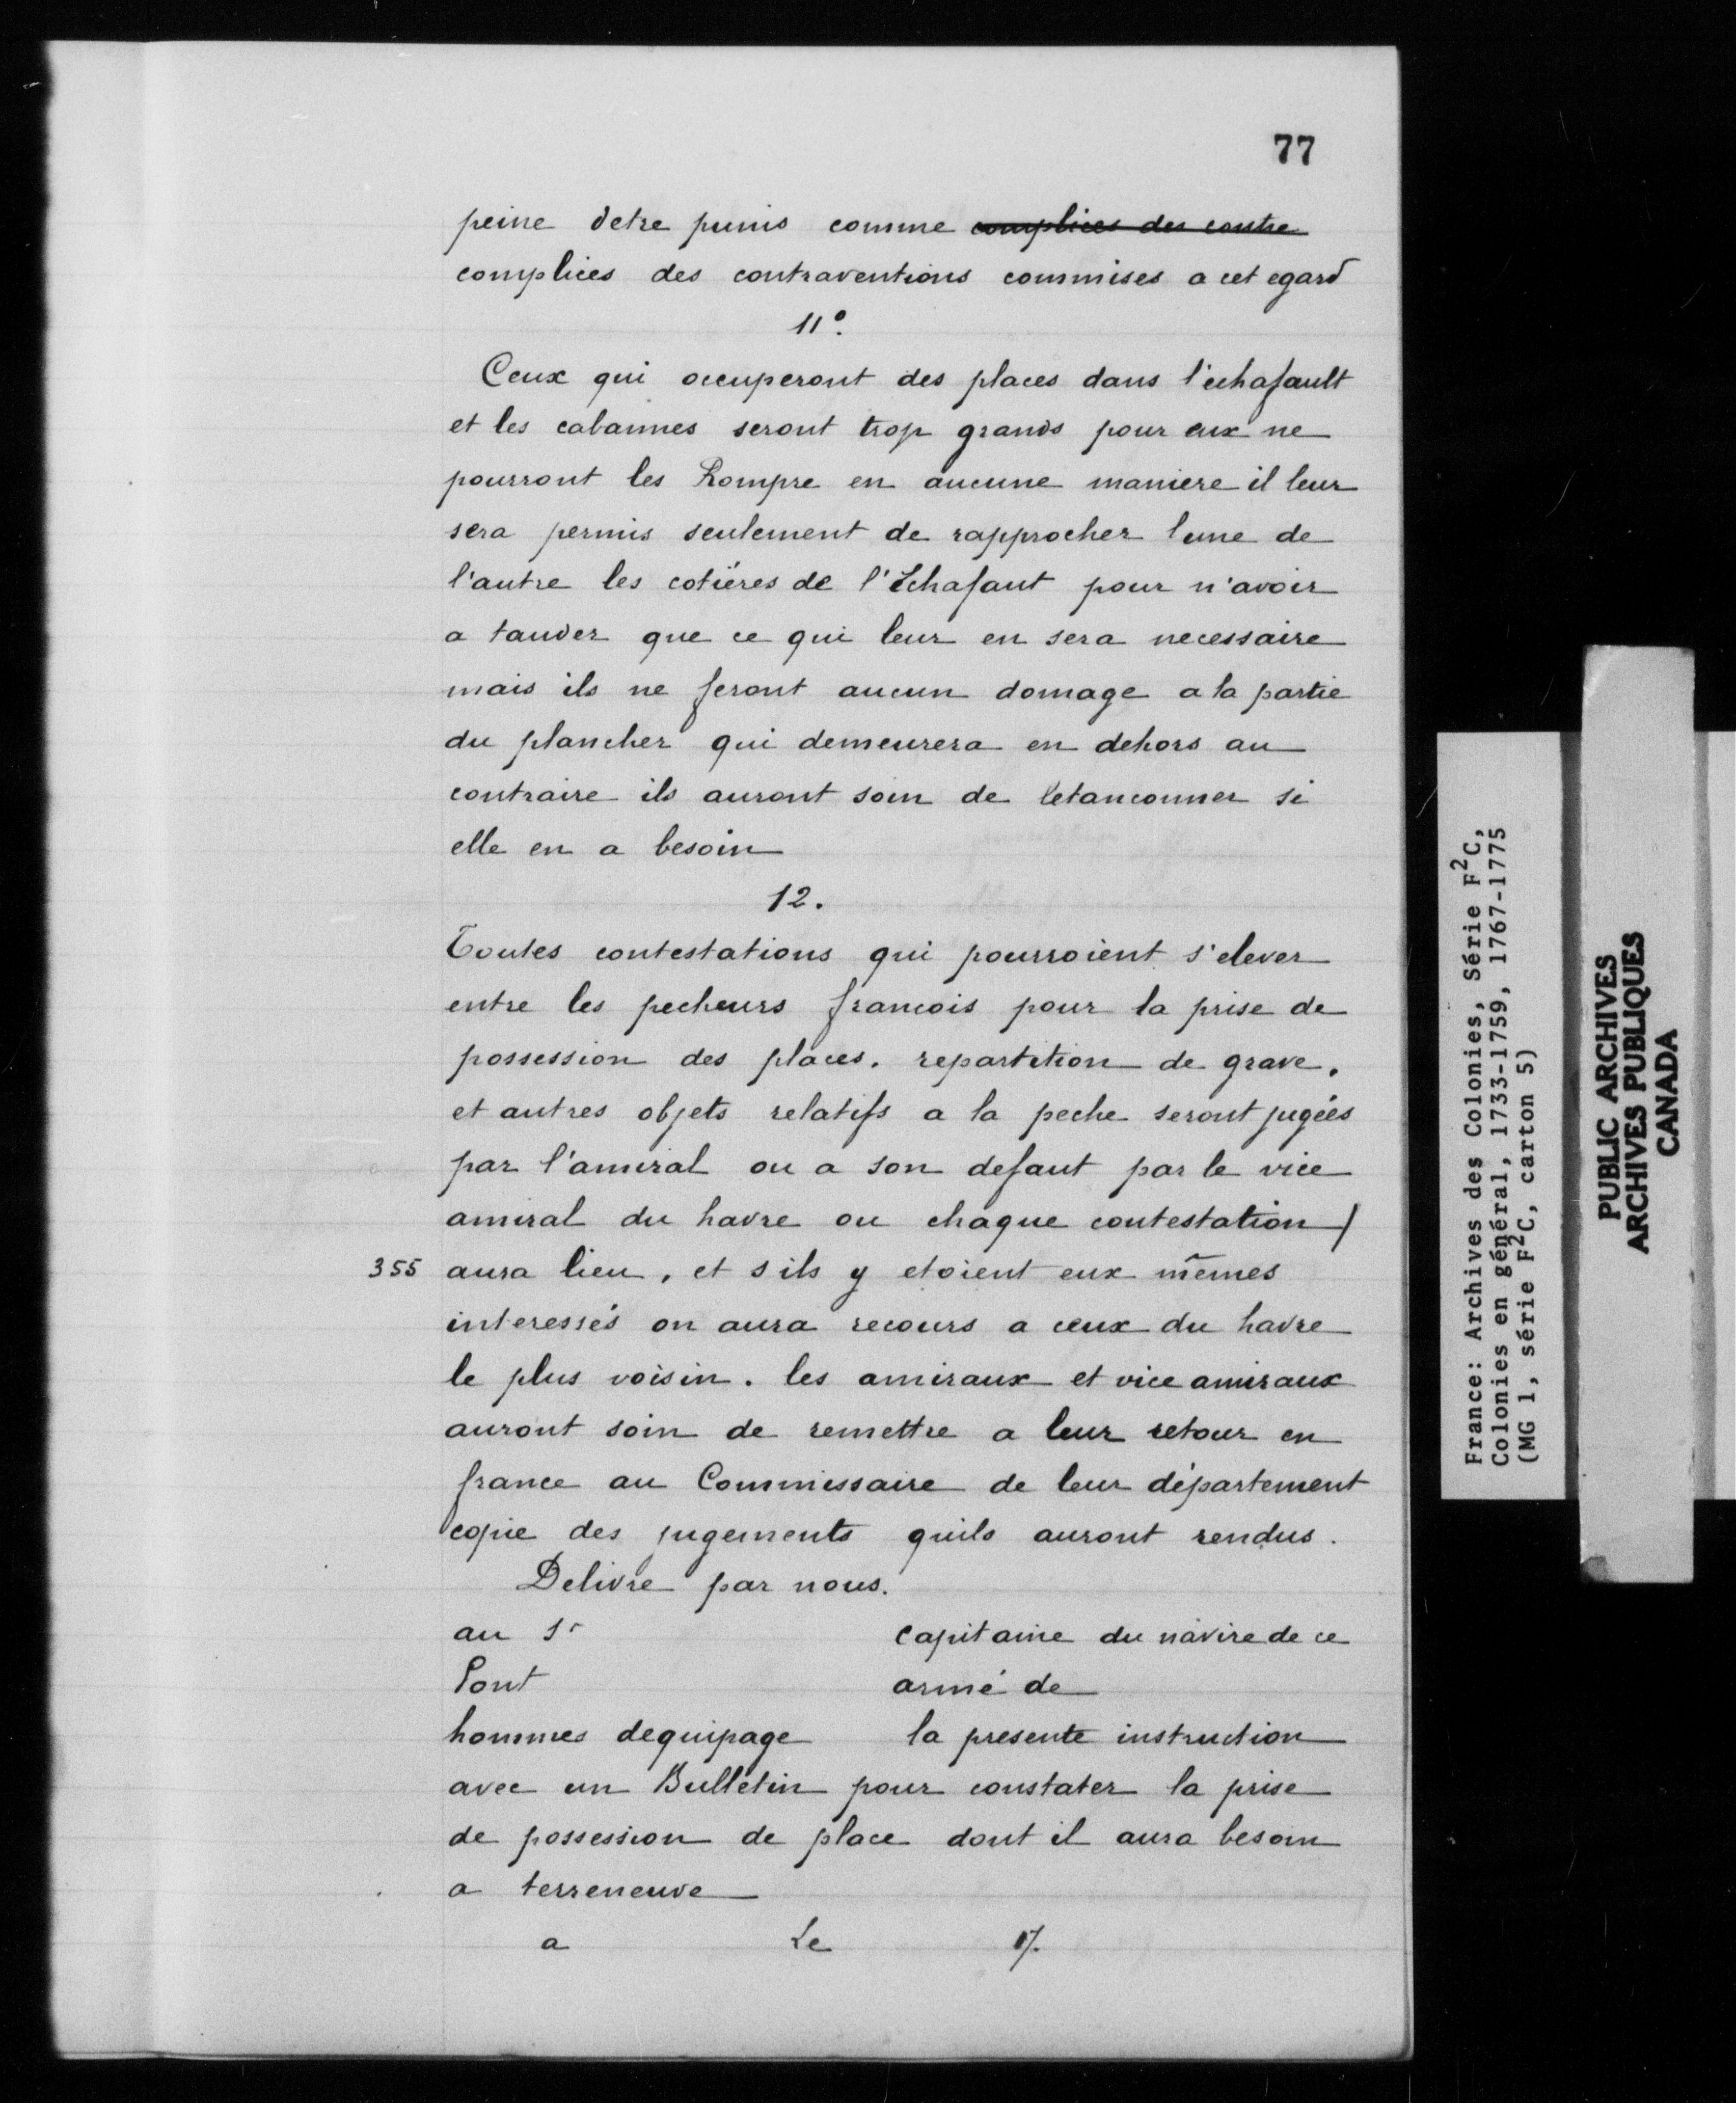 77
peine detre punis comme complices des contre
complices des contraventions commises a cet egard
11°.
Ceux qui occuperont des places dans l'echafault
et les cabannes seront trop grands pour eux ne
pourront les Rompre en aucune maniere il leur
sera permis seulement de rapprocher lune de
l'autre les cotiéres de l'Echafaut pour n'avoir
a tauder que ce qui leur en sera necessaire
mais ils ne feront aucun domage a la partie
du plancher qui demeurera en dehors au
contraire ils auront soin de letanconner si
elle en a besoin
12.
Toutes contestations qui pourroient s'elever
entre les pecheurs francois pour la prise de
possession des places. repartition de grave.
et autres objets relatifs a la peche seront jugées
par l'amiral ou a son defaut par le vice
amiral du havre ou chaque contestation /
355 aura lieu, et s ils y etoient eux mêmes
interessés on aura recours a ceux du havre
le plus voisin. les amiraux et vice amiraux
auront soin de remettre a leur retour en
france au Commissaire de leur département
copie des jugements quils auront rendus.
Delivre par nous.
au Sr capitaine du navire de ce
Pont armé de
hommes dequipage la presente instruction
avec un Bulletin pour constater la prise
de possession de place dont il aura besoin
a terreneuve
a Le 17.
France: Archives des Colonies, Série F2C,
Colonies en général, 1733-1759, 1767-1775
(MG 1, série F2C, carton 5)
PUBLIC ARCHIVES
ARCHIVES PUBLIQUES
CANADA